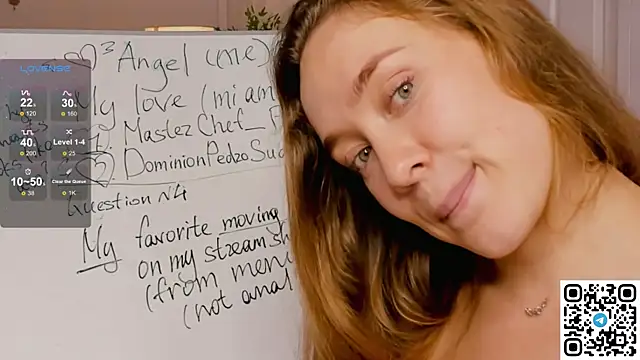 LOVENSE
22s
120
30s
160
40s
200
Level 1-4
25
10~50s
38
Clear the Queue
1K
3 Angel (me)
My love (mi am
MasterChef_
DominionPedroSu
Question №4
My favorite moving
on my stream sh
(from men
(not anal